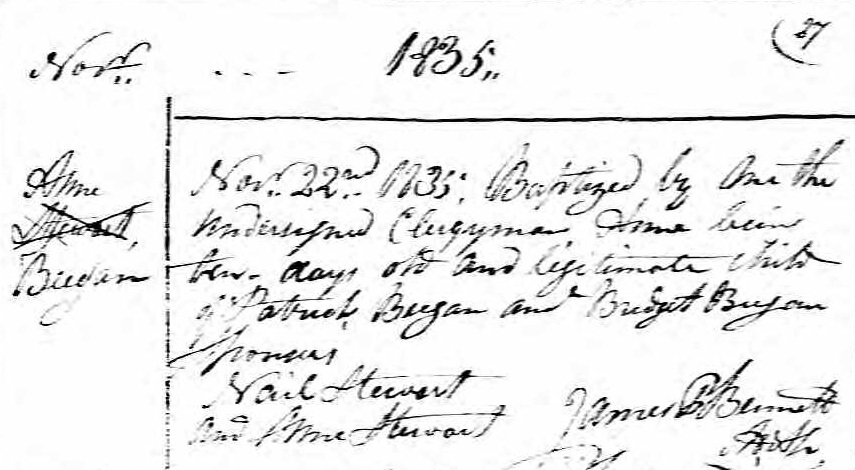 27
Novr. - - - 1835.,
Anne
Stewart,
Beegan
Novr. 22nd 1835. Baptized by me the
undersigned Clergyman Anne bein
ten days old and legitimate child
of Patrick Beegan and Bridget Beegan
Sponsers
Nail Stewart
and Anne Stewart
James Bennett